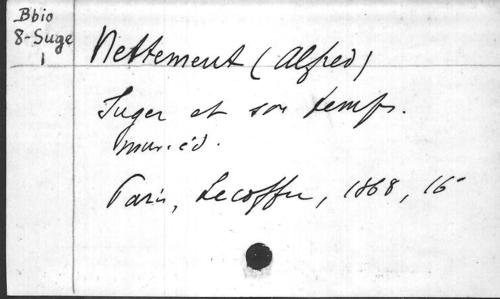 Bbio
8-Suge
1
Nettement (Alfred)
Suger et son temps.
éd.
Paris, Lecoffre, 1868, 16°